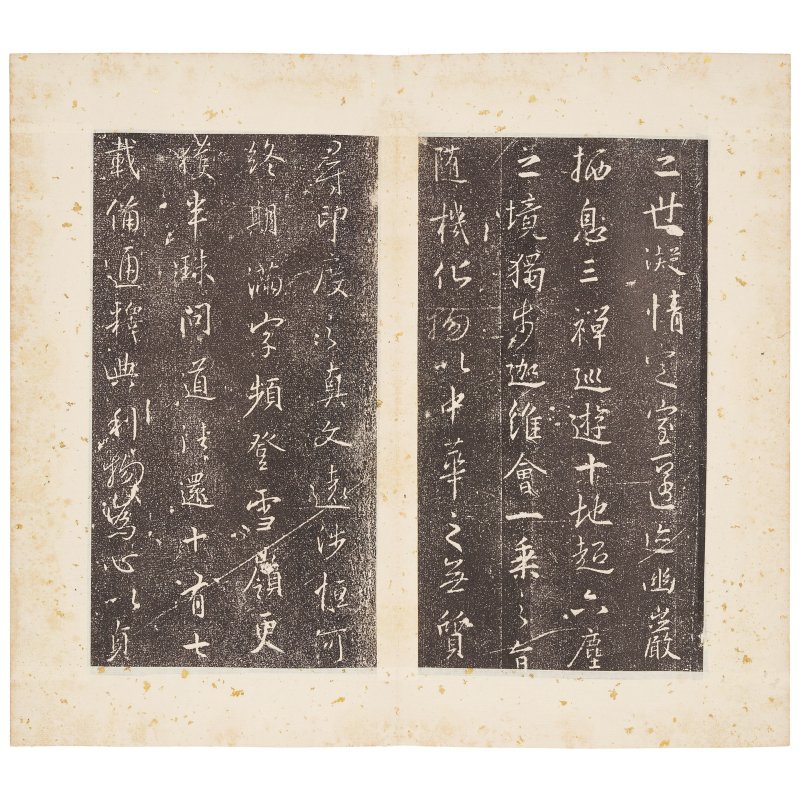 之世凝情定室匿迹幽巖
栖息三禪巡遊十地超六塵
之境獨步迦維會一乘之旨
隨機化物以中華之無質
尋印度之真文遠涉恒河
終期滿字頻登雪嶺更
獲半珠問道法還十有七
載備通釋典利物為心以貞